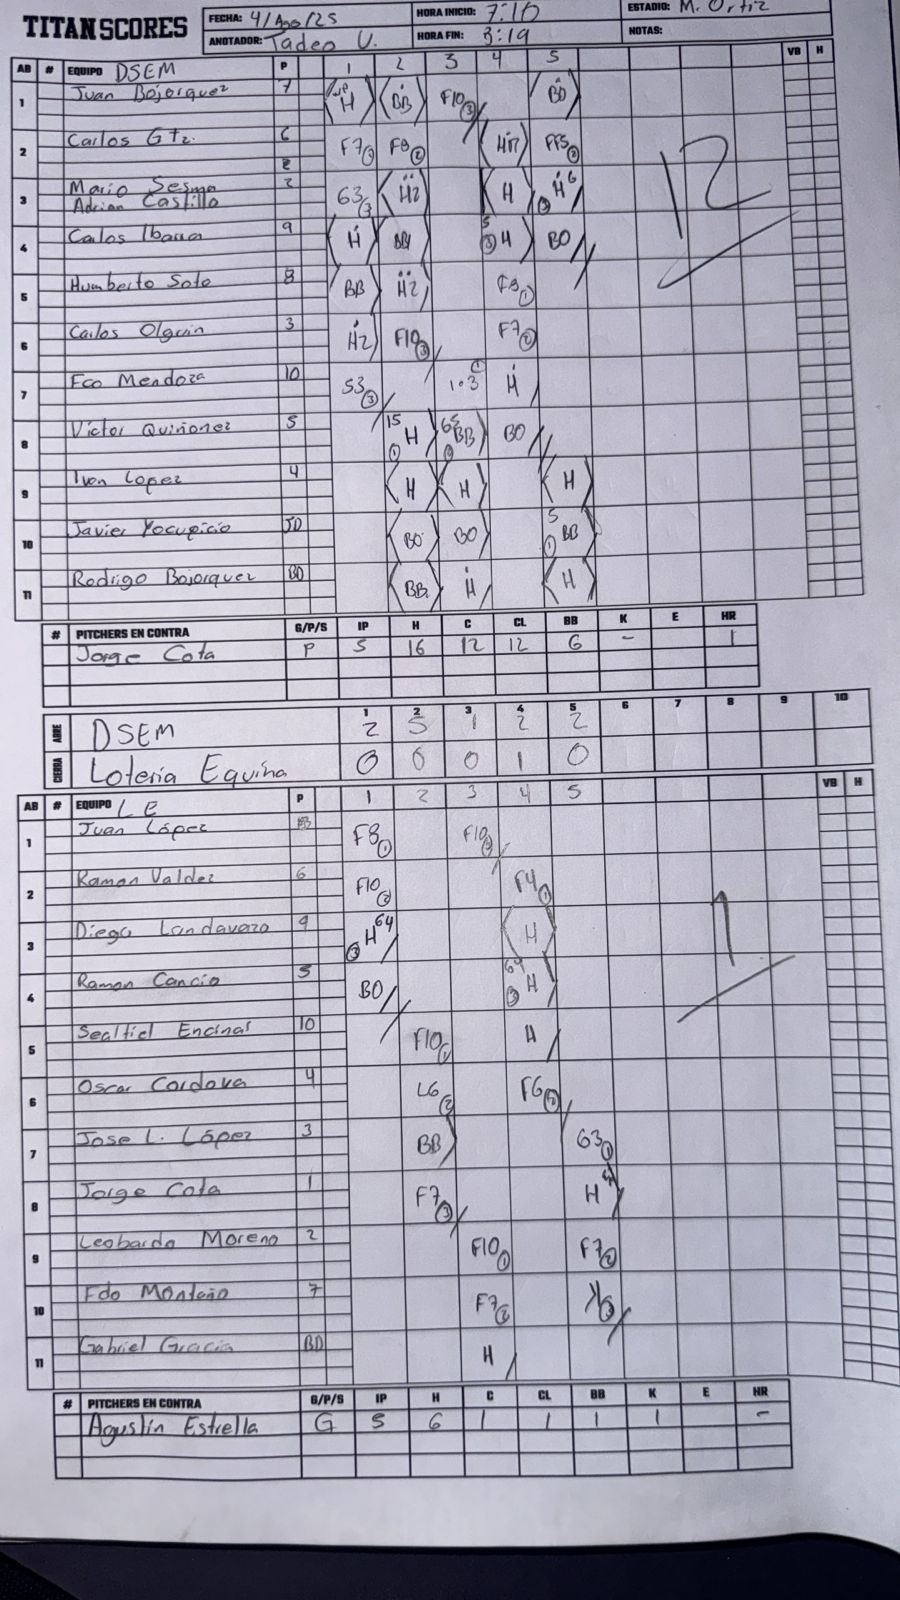 TITAN SCORES
FECHA: 4/Ago/25 HORA INICIO: 7:10 ESTADIO: M. Ortiz
ANOTADOR: Tadeo V. HORA FIN: 8:19 NOTAS:
AB # EQUIPO DSEM P 1 2 3 4 5 VB H
1 Juan Bojorquez 7 H BB F10 3 BO
2 Carlos Gtz. 6 F7 1 F8 2 HR FF5 2
3 Mario Sesma 2 63 3 H2 H H 6
Adrian Castillo
4 Carlos Ibarra 9 H BB 5 H BO
5 Humberto Soto 8 BB H2 F8 1
6 Carlos Olguin 3 H2 F10 3 F7 2
7 Fco Mendoza 10 53 3 1-3 1 H
8 Victor Quiñonez 5 15 1 H BB BO
9 Ivan Lopez 4 H H H
10 Javier Yocupicio JD BO BO 5 1 BB
11 Rodrigo Bojorquez BD BB H H
12
# PITCHERS EN CONTRA G/P/S IP H C CL BB K E HR
Jorge Cota P 5 16 12 12 6 - 1
1 2 3 4 5 6 7 8 9 10
ABRE DSEM 2 5 1 2 2
CIERRA Loteria Equina 0 0 0 1 0
AB # EQUIPO LE P 1 2 3 4 5 VB H
1 Juan López F8 1 F10 3
2 Ramon Valdez 6 F10 2 F4 1
3 Diego Landavazo 9 3 H 64 H
4 Ramon Cancio 5 BO 64 3 H
5 Sealtiel Encinas 10 F10 1 H
6 Oscar Cordova 4 L6 2 F6
7 Jose L. López 3 BB 63 1
8 Jorge Cota 1 F7 3 H
9 Leobardo Moreno 2 F10 1 F7 2
10 Fdo Montaño 7 F7 2 K 3
11 Gabriel Gracia BD H
1
# PITCHERS EN CONTRA G/P/S IP H C CL BB K E HR
Agustin Estrella G 5 6 1 1 1 1 -